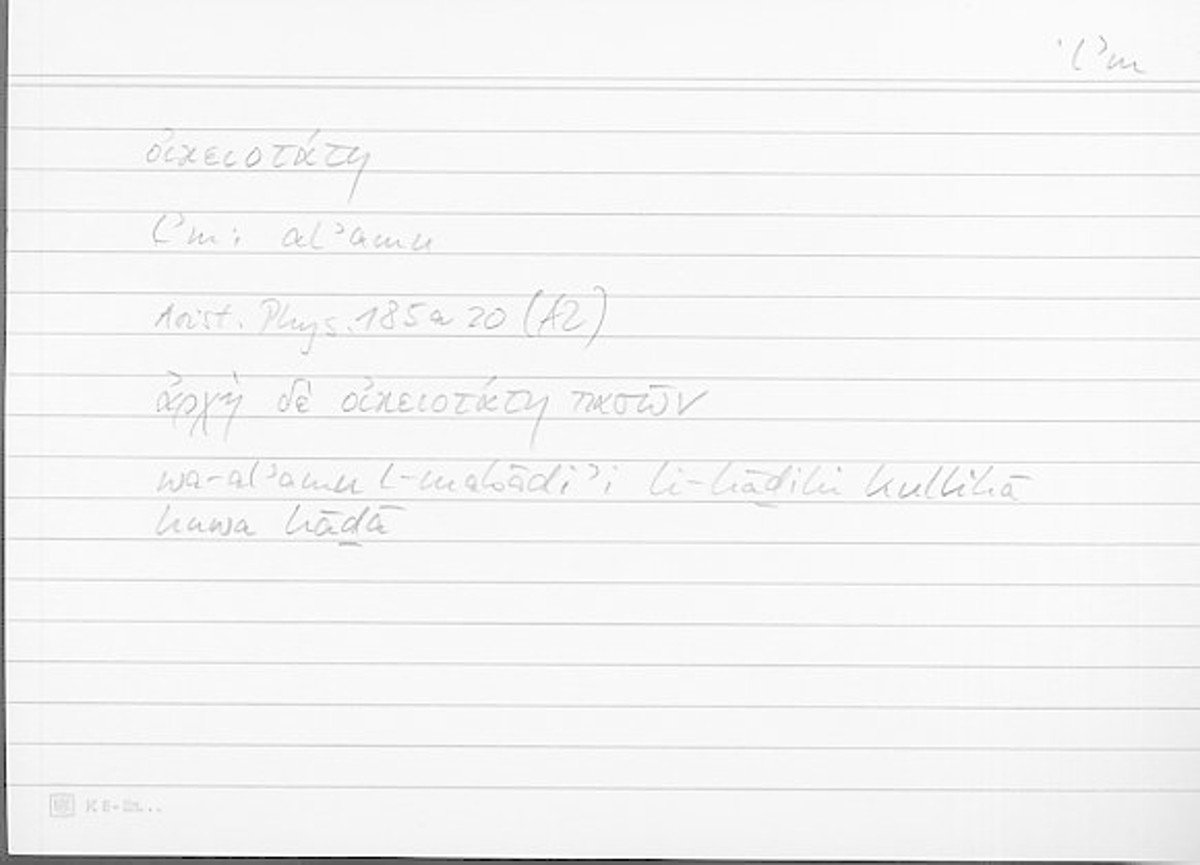 lʾm
οἰκειοτάτη
lʾm: alʾamu
Arist. Phys. 185a 20 (A2)
ἀρχὴ δὲ οἰκειοτάτη πασῶν
wa-alʾamu l-mabādiʾi li-hāḏihi kullihā
huwa hāḏā